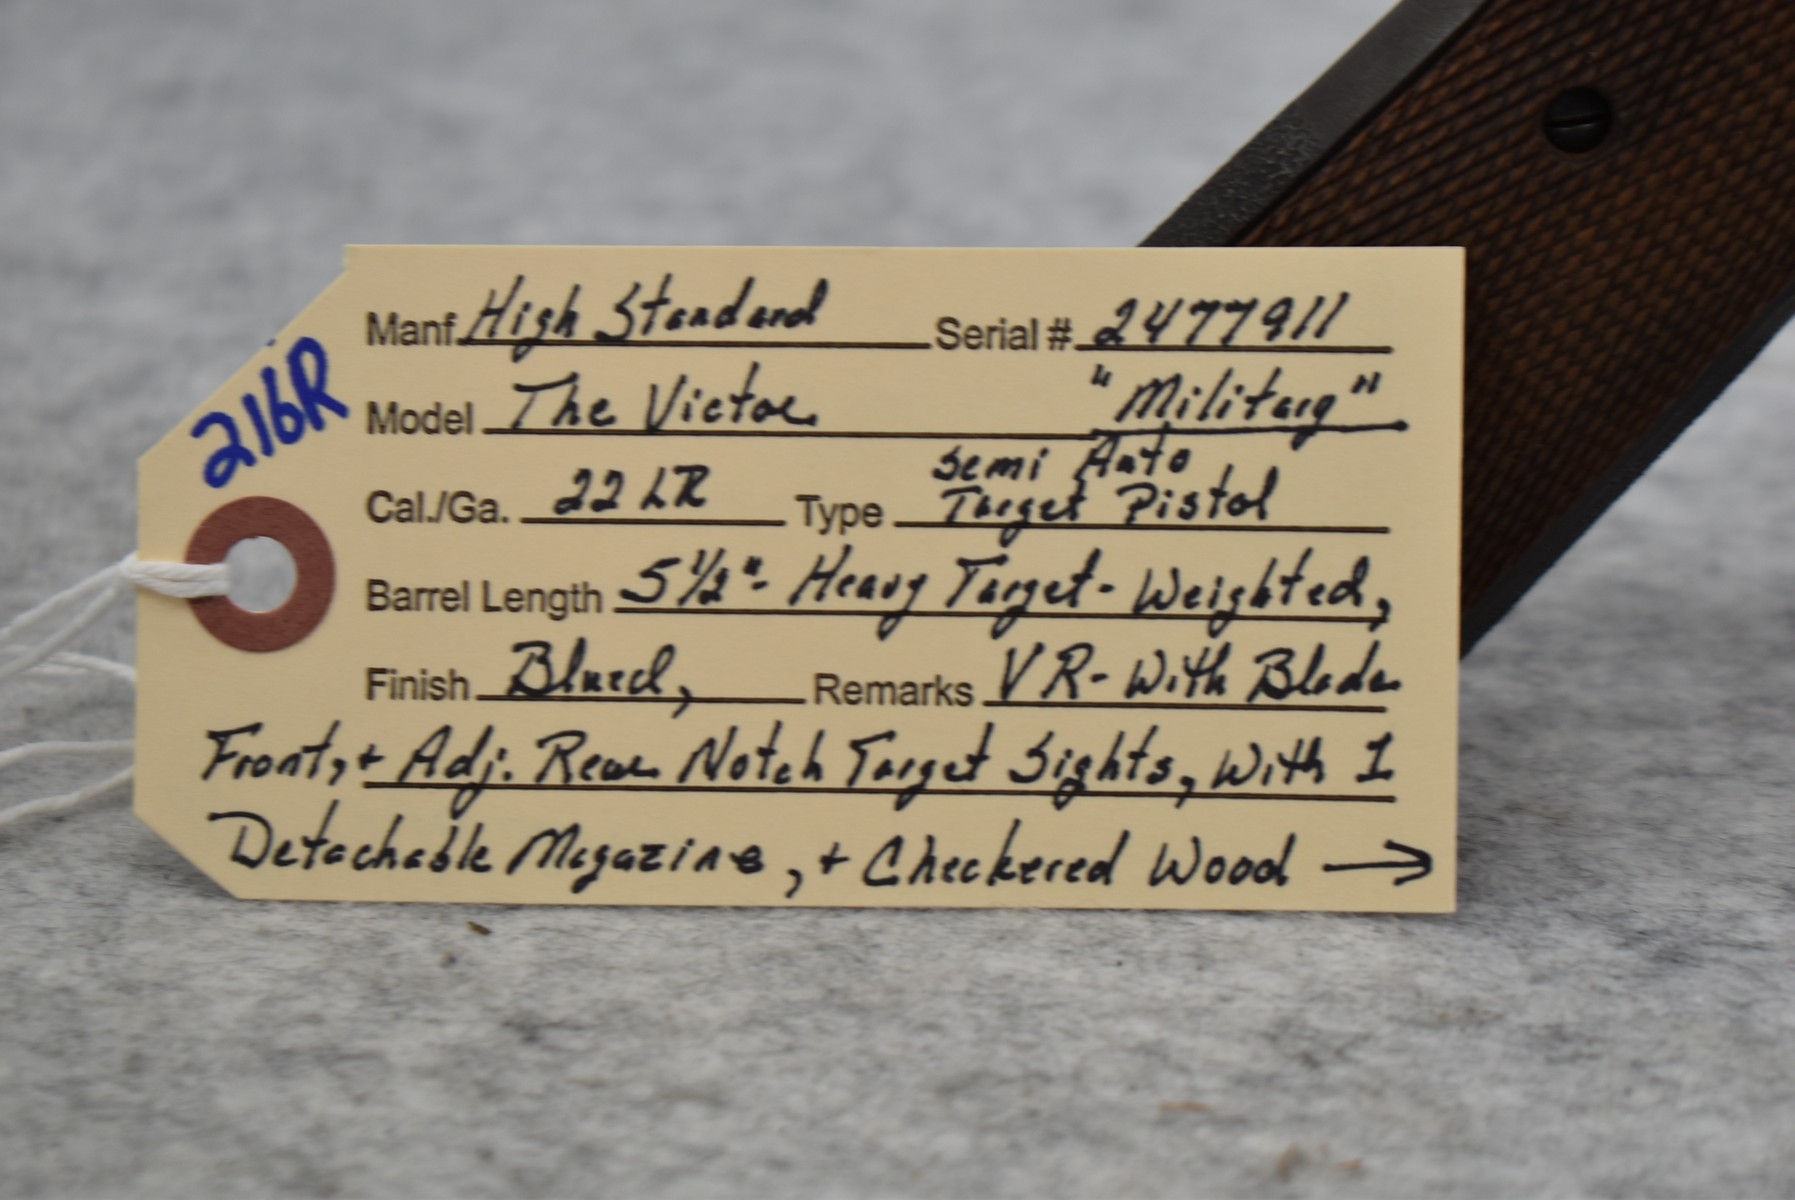 216R
Manf. High Standard Serial # 2477911
Model The Victor "Military"
Semi Auto
Cal./Ga. 22 LR Type Target Pistol
Barrel Length 5 1/2"- Heavy Target- Weighted,
Finish Blued, Remarks VR- With Blade
Front, + Adj. Rear Notch Target Sights, With 1
Detachable Magazine, + Checkered Wood →